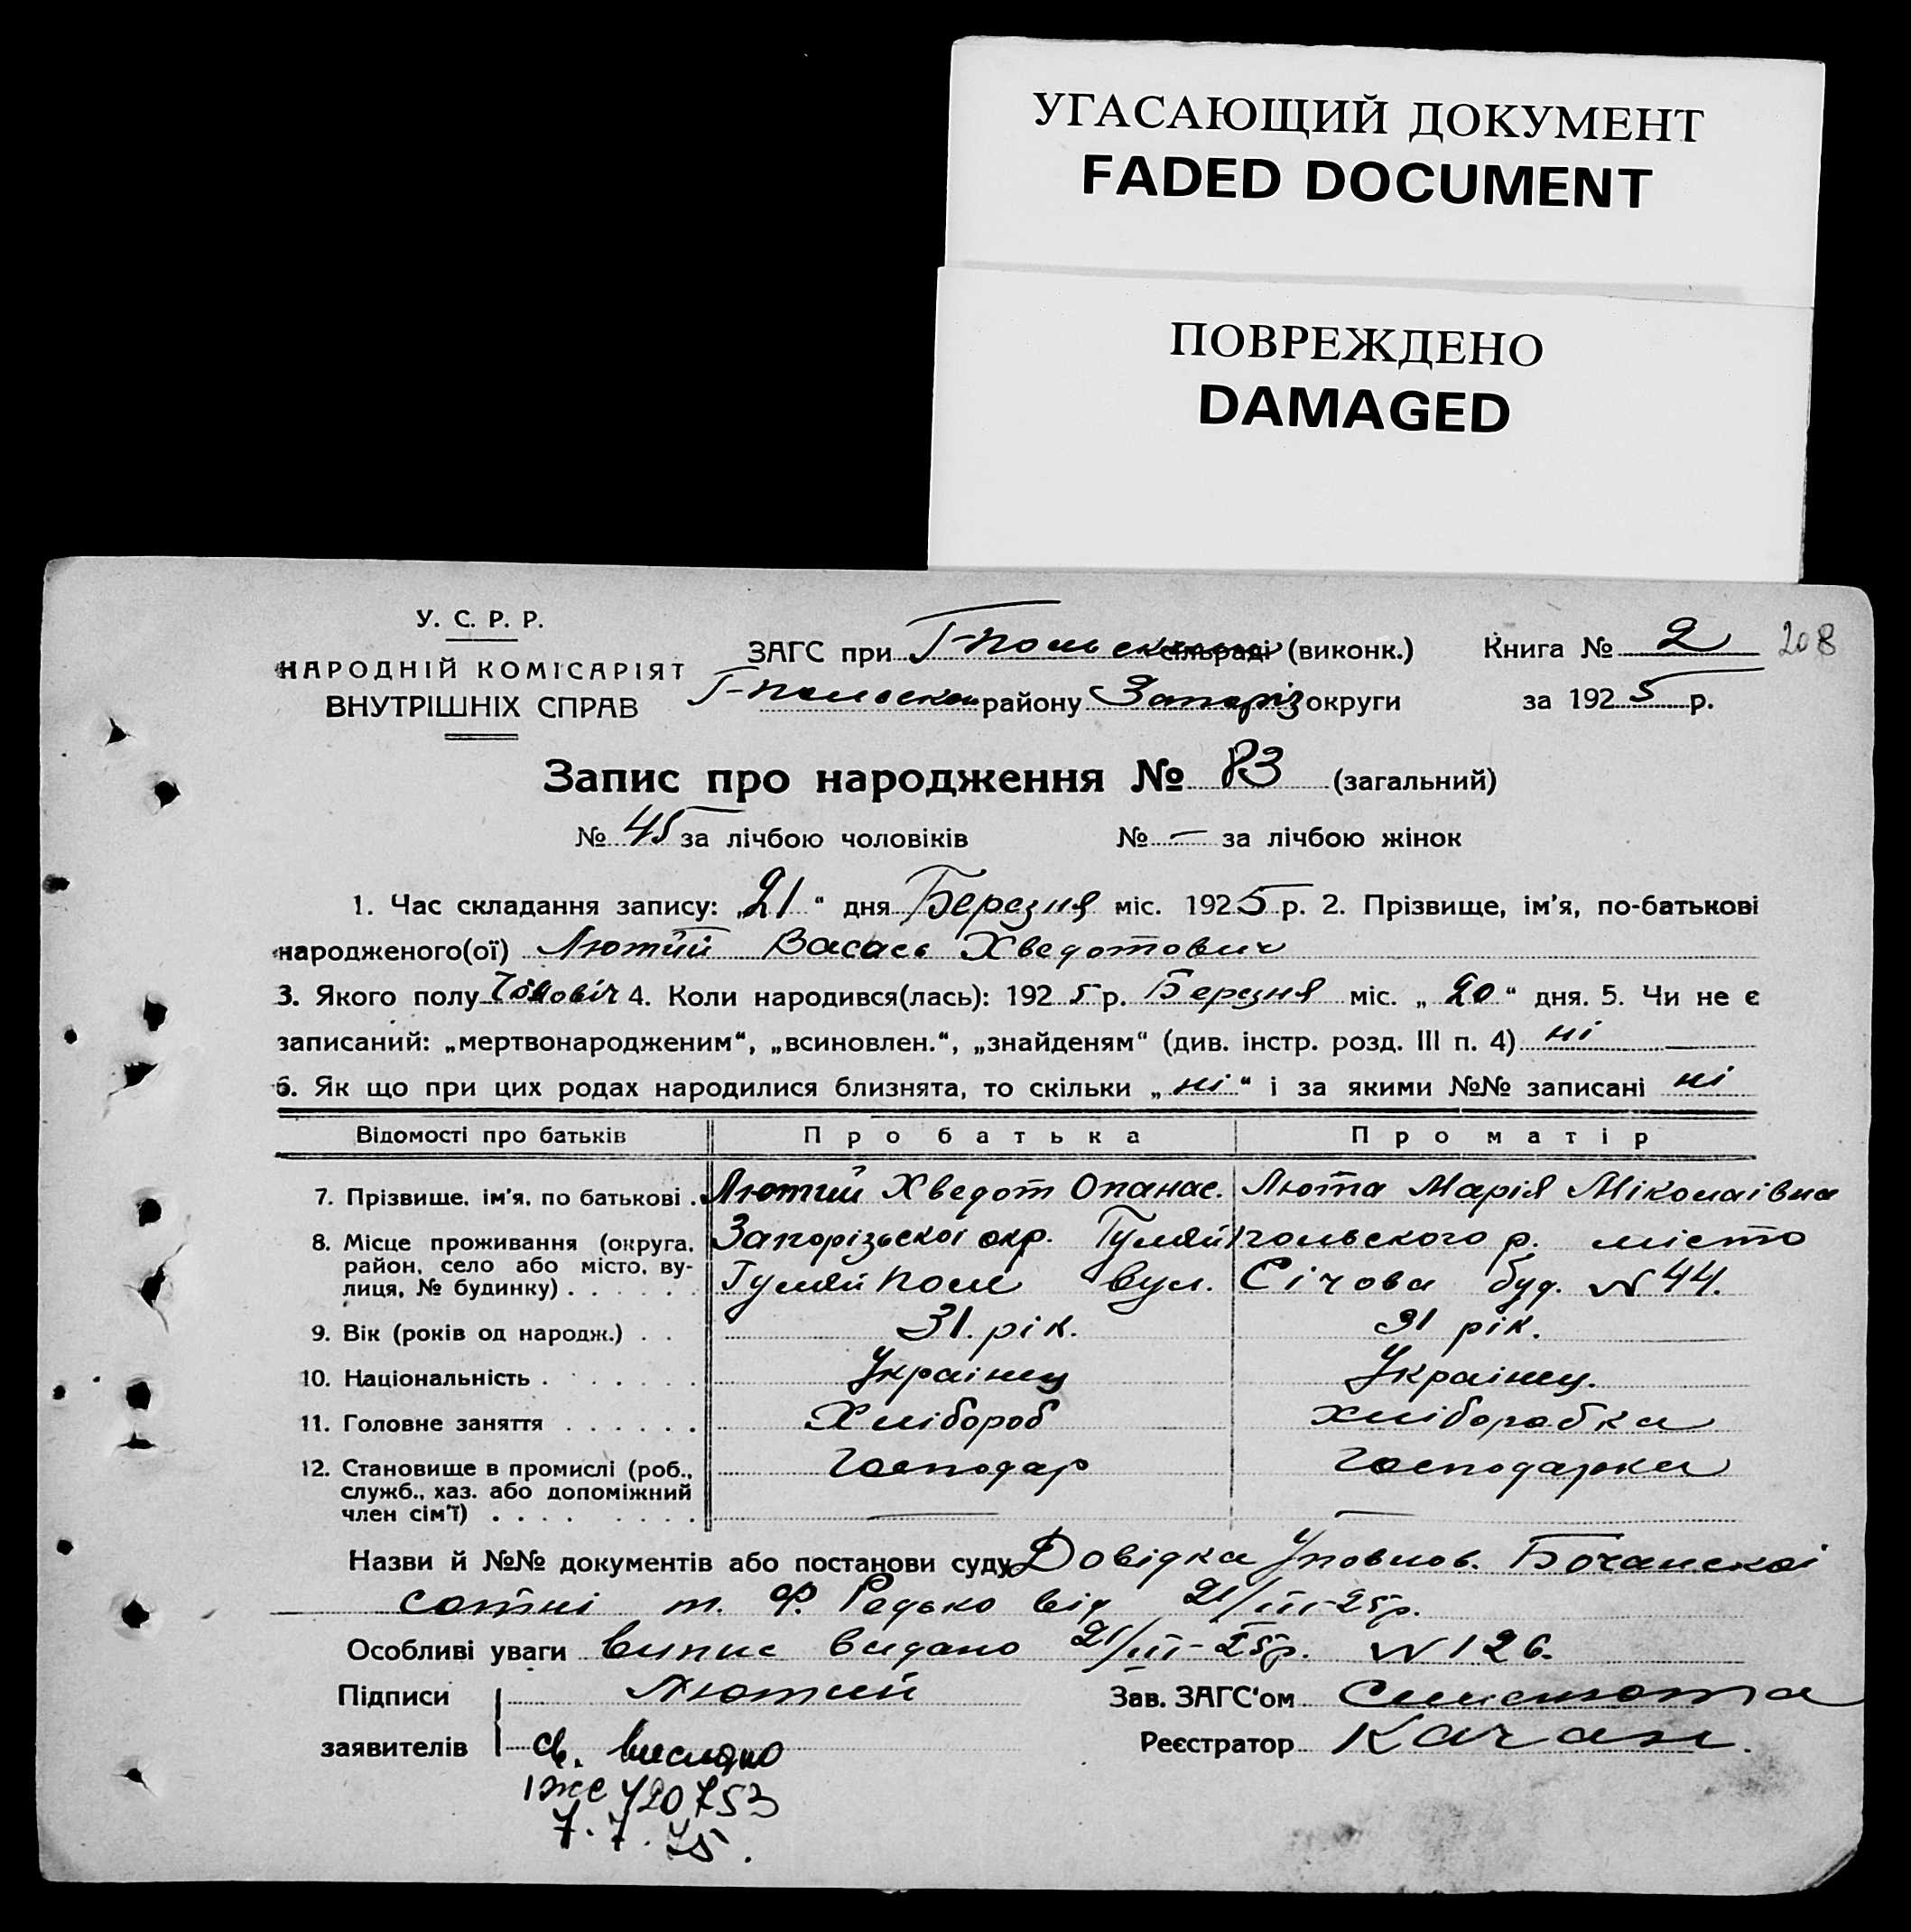 УГАСАЮЩИЙ ДОКУМЕНТ
FADED DOCUMENT
ПОВРЕЖДЕНО
DAMAGED
У. С. Р. Р.
НАРОДНІЙ КОМІСАРІЯТ
ВНУТРІШНІХ СПРАВ
ЗАГС при Г-польском сільраді (виконк.) Книга № 2 208
Г-польском району Запоріз округи за 1925 р.
Запис про народження № 83 (загальний)
№ 45 за лічбою чоловіків № — за лічбою жінок
1. Час складання запису: „21“ дня Березня міс. 1925 р. 2. Прізвище, ім'я, по-батькові
народженого(ої) Лютий Васась Хведотович
3. Якого полу Чоловіч 4. Коли народився(лась): 1925 р. Березня міс. „20“ дня. 5. Чи не є
записаний: „мертвонародженим“, „всиновлен.“, „знайденям“ (див. інстр. розд. III п. 4) ні
6. Як що при цих родах народилися близнята, то скільки „ні“ і за якими №№ записані ні
Відомості про батьків Про батька Про матір
7. Прізвище, ім'я, по батькові . Лютий Хведот Опанас. Люта Марія Міколаівна
8. Місце проживання (округа, Запорізьскої окр. Гуляйпольского р. місто
район, село або місто, ву-
лиця, № будинку) . . . . . . Гуляй Поле вул. Січова буд. № 44.
9. Вік (років од народж.) . . 31. рік. 31 рік.
10. Національність . . . . . . . Украінец Украінец.
11. Головне заняття . . . . . . Хлібороб хліборобка
12. Становище в промислі (роб., Господар Господарка
служб., хаз. або допоміжний
член сім'ї) . . . . . . . . — —
Назви й №№ документів або постанови суду Довідка Уповнов. Бочанскоі
сотні т. Ф. Редько від 21/III-25р.
Особливі уваги випис видано 21/III-25р. № 126.
Підписи Лютий Зав. ЗАГС'ом
заявителів св. выслано Реєстратор Качан.
1 ЖС 720753
7.7.75.